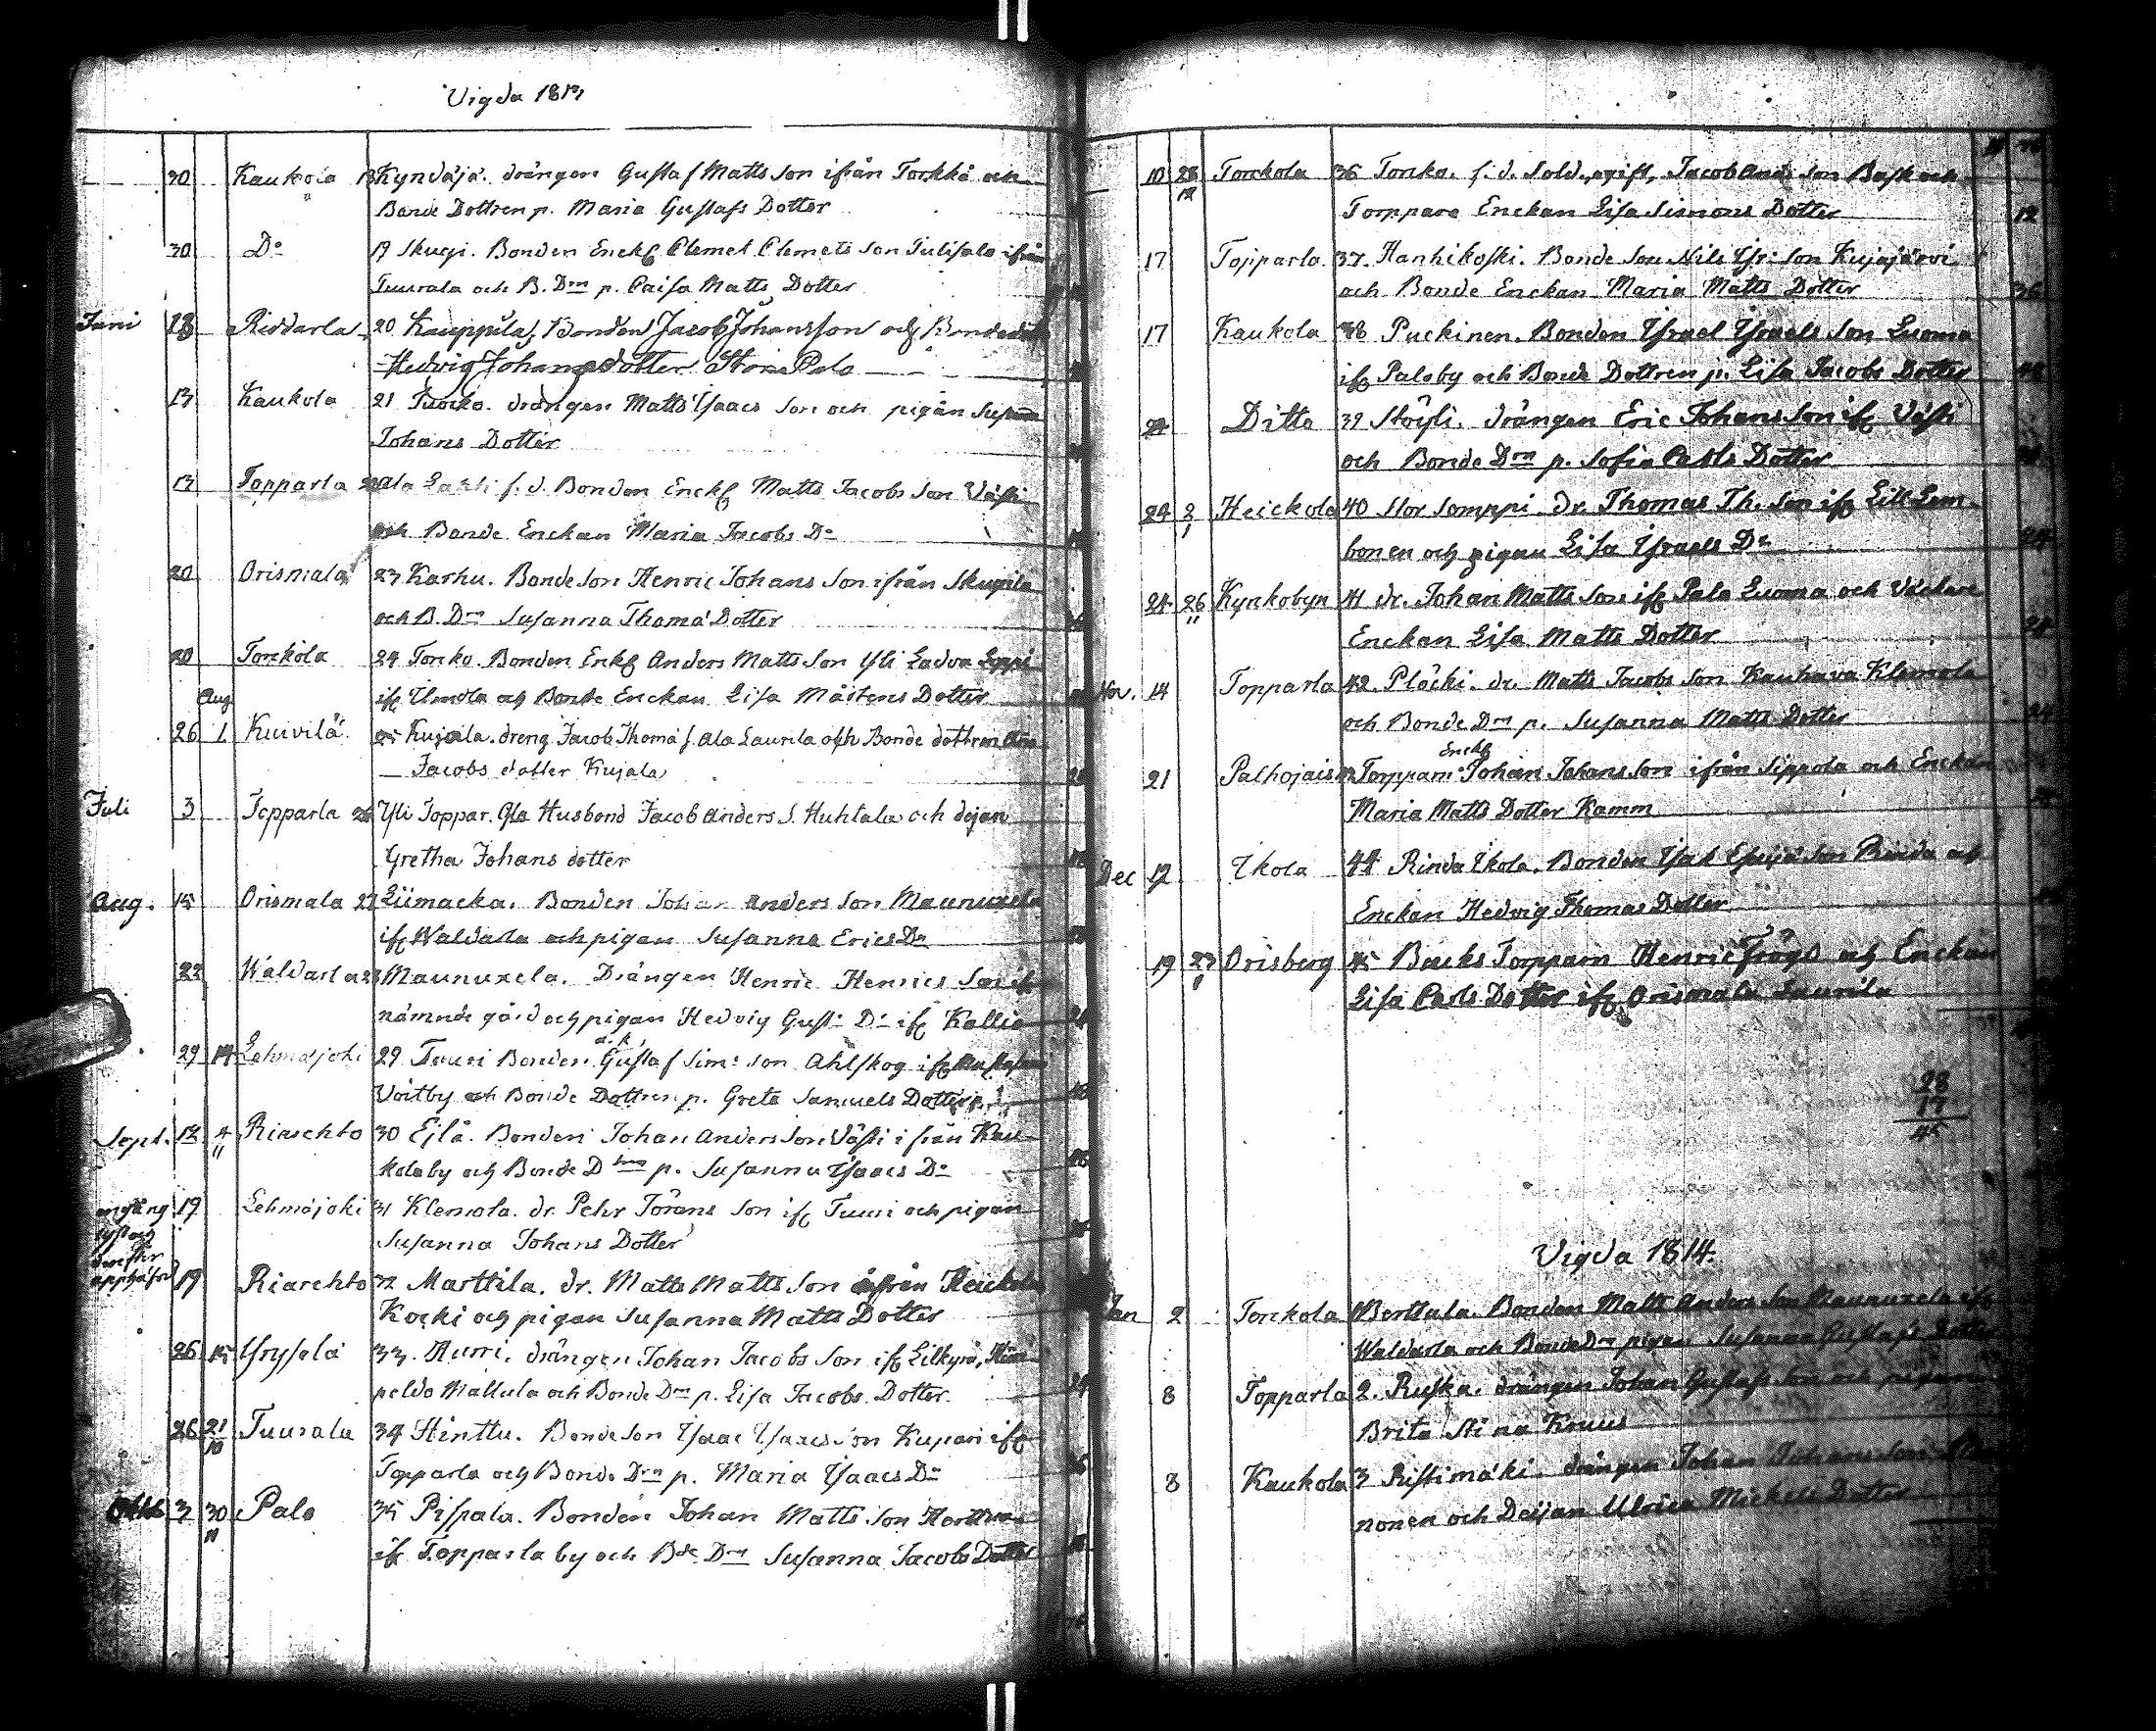 Vigda 1813
30 Kaukola 18 Kyndäjä. drängen Gustaf Matts Son ifrån Torkkå och
Bonde Dottren p. Maria Gustafs Dotter
30 Do 19 Skugi. Bonden Enckf Clemet Clemets Son Tulisalo ifrån
Tuurala och B. Drn p. Caisa Matts Dotter
Juni 13 Riddarla 20 Kauppila, Bonden Jacob Johansson och
Hedvig Johansdotter Stor Palo
13 Kaukola 21 drängen Matts Isaacs Son och pigan Susanna
Johans Dotter
13 Topparla 22 Ala f. d. Bonden Enckf Matts Jacobs Son Västi
och Bonde Enckan Maria Jacobs Dr
20 Orismala 23 Karhu. Bonde Son Henric Johans Son ifrån Skugila
och B. Drn Susanna Thomä Dotter
20 Tonckola 24 Toncko. Bonden Enkf Anders Matts Son Yli Ladva
ifr Ulmola och Bonde Enckan Lisa Mårtens Dotter
Aug
26 1 Kuivilä 25 Kujala. dreng Jacob Thomä s. Ala Laurila och Bonde dottren
Jacobs dotter Kujala
Juli 3 Topparla 26 Yli Toppar. Husbond Jacob Anders S. Huhtala och dejan
Gretha Johans dotter
Aug. 15 Orismala 27 Liimacka. Bonden Johan Anders Son Maunuxela
ifr Waldarla och pigan Susanna Erics Dr
22 Waldarla 28 Maunuxela. Drängen Henric Henrics Son ifr
nämnde gård och pigan Hedvig Gust: Dr ifr Kallio
29 Lehmäjoki 29 Tuuri Bonden Gustaf Sim: Son Ahlskog ifr Mustasaari
Voitby och Bonde Dottren p. Greta Samuels Dotter
Sept. 12 4/11 Riarchto 30 Eilä. Bonden Johan Anders Son Västi ifrån Kau-
kola by och Bonde D p. Susanna Isaacs Dr
19 Lehmäjoki 31 Klemola. dr. Pehr Jörans Son ifr Tuuri och pigan
Susanna Johans Dotter
19 Riarchto 32 Marttila. dr. Matts Matts Son ifrån Heickola
Kocki och pigan Susanna Matts Dotter
26 15 Yryselä 33. Rurri. drängen Johan Jacobs Son ifr Lilkyro,
peldo Mattula och Bonde Drn p. Lisa Jacobs Dotter
26 21/10 Tuurala 34 Hinttu. Bonde Son Isaac Isaacs Son Kupari ifr
Topparla och Bonde Drn p. Maria Isaacs Dr
3 30 Palo 35 Pispala. Bonden Johan Matts Son
ifr Topparla by och Bde Drn Susanna Jacobs Dotter
10 28/12 Tonckola 36 Toncko. f. d. Sold., Jacob And: Son Bask och
Torppare Enckan Lisa Simons Dotter 12
17 Topparla 37. Hanhikoski. Bonde Son Nils Isr: Son Kujajärvi
och Bonde Enckan Maria Matts Dotter 36
17 Kaukola 38 Puckinen. Bonden Israel Israels Son Luoma
ifr Palo by och Bonde Dottren p. Lisa Jacobs Dotter 48
24 Ditto 39 Köyli. drängen Eric Johans Son ifr Västi
och Bonde Drn p. Sofia Carls Dotter
24 2/1 Heickola 40 Stor Somppi dr. Thomas Th. Son ifr Lill Lem-
bonen och pigan Lisa Israels Dr 24
24 26/11 Kynkobyn 41 dr. Johan Matts Son ifr Palo Luoma och
Enckan Lisa Matts Dotter 24
Nov. 14 Topparla 42. Plöcki. dr. Matts Jacobs Son Kauhava Klemola
och Bonde Drn p. Susanna Matts Dotter 24
Enckf
21 Palhojais Torpparn Johan Johans Son ifrån Sippola och Enckan
Maria Matts Dotter Kamm
Dec 12 Ikola 44 Rinda Ikola. Bonden Isak Son Rinda och
Enckan Hedvig Thomas Dotter
19 Orisberg 45 Backs Torpparn Henric Frögd och Enckan
Lisa Carls Dotter ifr Orismala Laurila
28
17
45
Vigda 1814.
Jan 2 Tonckola 1 Berttula. Bonden Matts Anders Son Maunuxela ifr
Waldarla och Bonde Drn pigan Susanna Gustafs Dotter
8 Topparla 2. Ruska. drängen Johan Gustafs Son och pigan
Brita Stina Kruus
8 Kaukola 3 Ristimäki. drängen Johan Johans Son
nonen och Deijan Ulrica Mickels Dotter